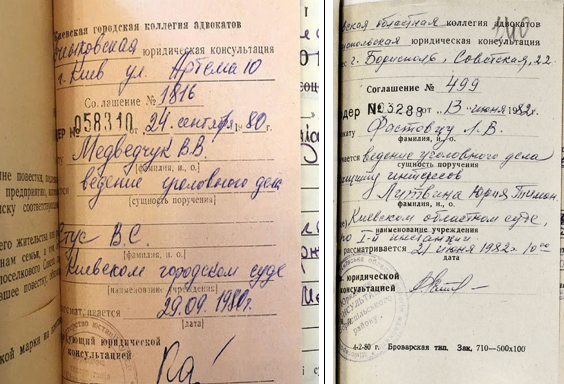 Киевская городская коллегия адвокатов
юридическая консультация
г. Киев ул. Артема 10
Соглашение № 1816
ДЕР № 058310 от 24 сентября 1980г.
Медведчук В.В.
[фамилия, и., о.]
ведение уголовного дела
[сущность поручения]
Стус В.С.
[фамилия, и., о.]
Киевском городском суде
[наименование учреждения]
29.09.1980г.
[дата]
юридической
консультацией
вская областная коллегия адвокатов
польская юридическая консультация
с г. Борисполь, Советская, 22
Соглашение № 499
рдер № 03288 от „13" июня 1982г.
Фастовцу Л.В.
фамилия, и., о.
ведение уголовного дела
сущность поручения
интересов
Литвина Юрия Тимон.
фамилия, и., о.
Киевском областном суде,
наименование учреждения
по I-й инстанции
рассматривается 21 июня 1982г. 10⁰⁰
дата
юридической
консультацией
4-2-80 г. Броварская тип. Зак. 710—500х100